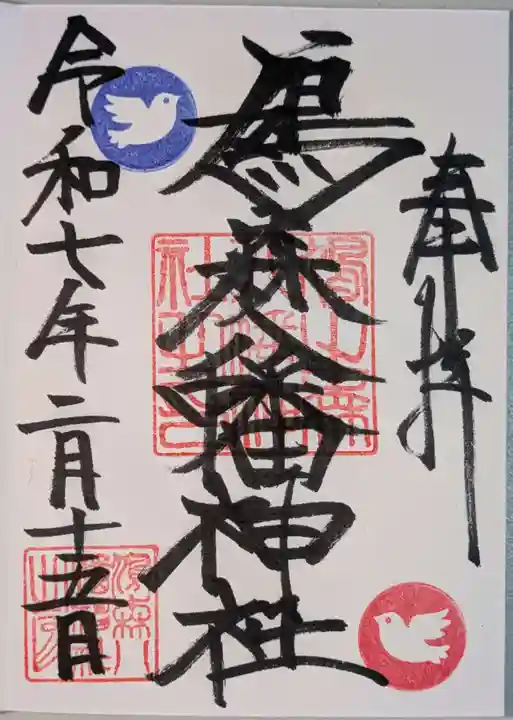 奉拝
鳩森八幡神社
令和七年二月十五日